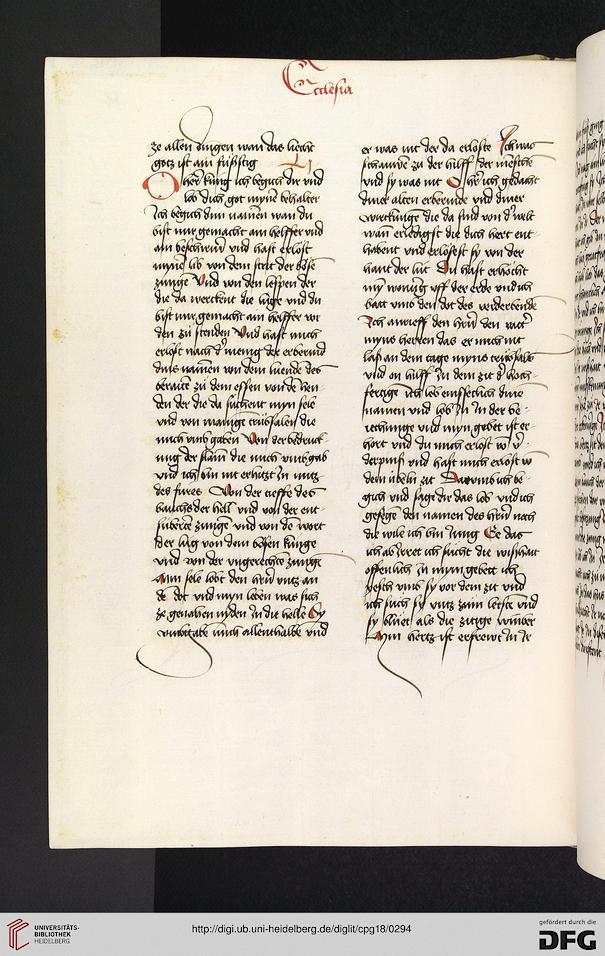 Ecclesia
ze allen dingen wan das liecht
gotz ist ain fůßstig LI
O herr kung ich begich dir vnd
lob dich got mynē behalter
Ich begich dim namen wan du
bist mir gemacht ain helffer vnd
ain beschirm vnd hast erlost
mynē lib von dem strit der böse
zunge Vnd von den lespen der
die da werckent die luge vnd du
bist mir gemacht ain helffer vor
den zů stenden Vnd hast mich
erlost nach d' meng der erbermd
dins namen von dem
beraitē zů dem essen von dē hen
den der die da sůchent myn sele
vnd von manige trübsalen die
mich vmbgaben Von der bedruck
ung der flam die mich vmbgab
vnd ich bin nit erhitzt In mitz
des fures Von der tieffe des
buchs der hell vnd von der ent
suberte zunge vnd von dē wort
der lug von dem bösen kunge
vnd von der vngerechtē zunge
Min sele lobt den hrn̄ vntz an
dē dot vnd myn leben was sich
ze genahen nyden In die helle Sy
vmbgabē mich allenthalbē vnd
er was nit der da erloste Ich was
schauwē zů der hilff der mēsche
vnd sy was nit O h'r ich gedacht
diner alten erbermde vnd diner
wurckunge die da sind von d' welt
wan̄ erledigst die dich herr ent
habent vnd erlosest sy von der
hant der lut Du hast erhöcht
my wonūg vff der erde vnd ich
batt vmb den dot des
Ich anrieff den hrn̄ den vatt'
myns herren das er mich nit
laß an dem tage myns trübsals
vnd on hilff In dem zit d' hoch
fertigē Ich lob emsseclich dinē
namen vnd lob In In der be
iechunge vnd myn gebet ist er
hört vnd du mich erlost vō v'
derpniß vnd hast mich erlost vō
dem úbeln zit Darumb ich be
gich vnd sage dir das lob vnd ich
gesege den namen des hrn̄ noch
die wile ich bin Jung Ee das
ich ab Irret ich sucht die wißhait
offenlich In mym gebett ich
hiesch vmb sy vor dem zit vnd
ich such sy vntz zum letstē vnd
sy als die zittge winber
Myn hertz ist erfrewt In Ir
UNIVERSITÄTS-
BIBLIOTHEK
HEIDELBERG
http://digi.ub.uni-heidelberg.de/diglit/cpg18/0294
gefördert durch die
DFG